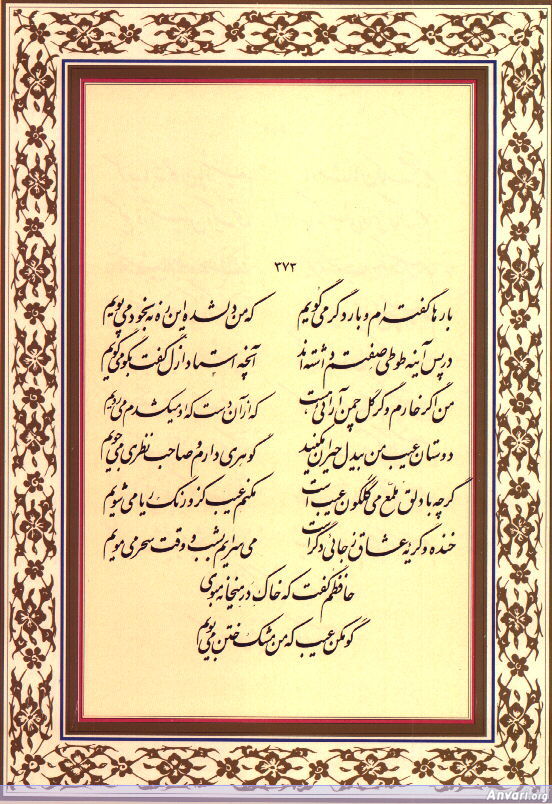 ۳۷۳
بارها گفته‌ام و بار دگر می‌گویم که من دلشده این ره نه بخود می‌پویم
در پس آینه طوطی صفتم داشته‌اند آنچه استاد ازل گفت بگو می‌گویم
من اگر خارم و گر گل چمن آرائی هست که از آن دست که او میکشدم می‌رویم
دوستان عیب من بیدل حیران مکنید گوهری دارم و صاحب نظری می‌جویم
گرچه با دلق ملمع می گلگون عیب است مکنم عیب کزو رنگ ریا می‌شویم
خنده و گریه عشاق ز جائی دگر است می‌سرایم بشب و وقت سحر می‌مویم
حافظم گفت که خاک در میخانه مبوی
گو مکن عیب که من مشک ختن می‌بویم
Anvari.org